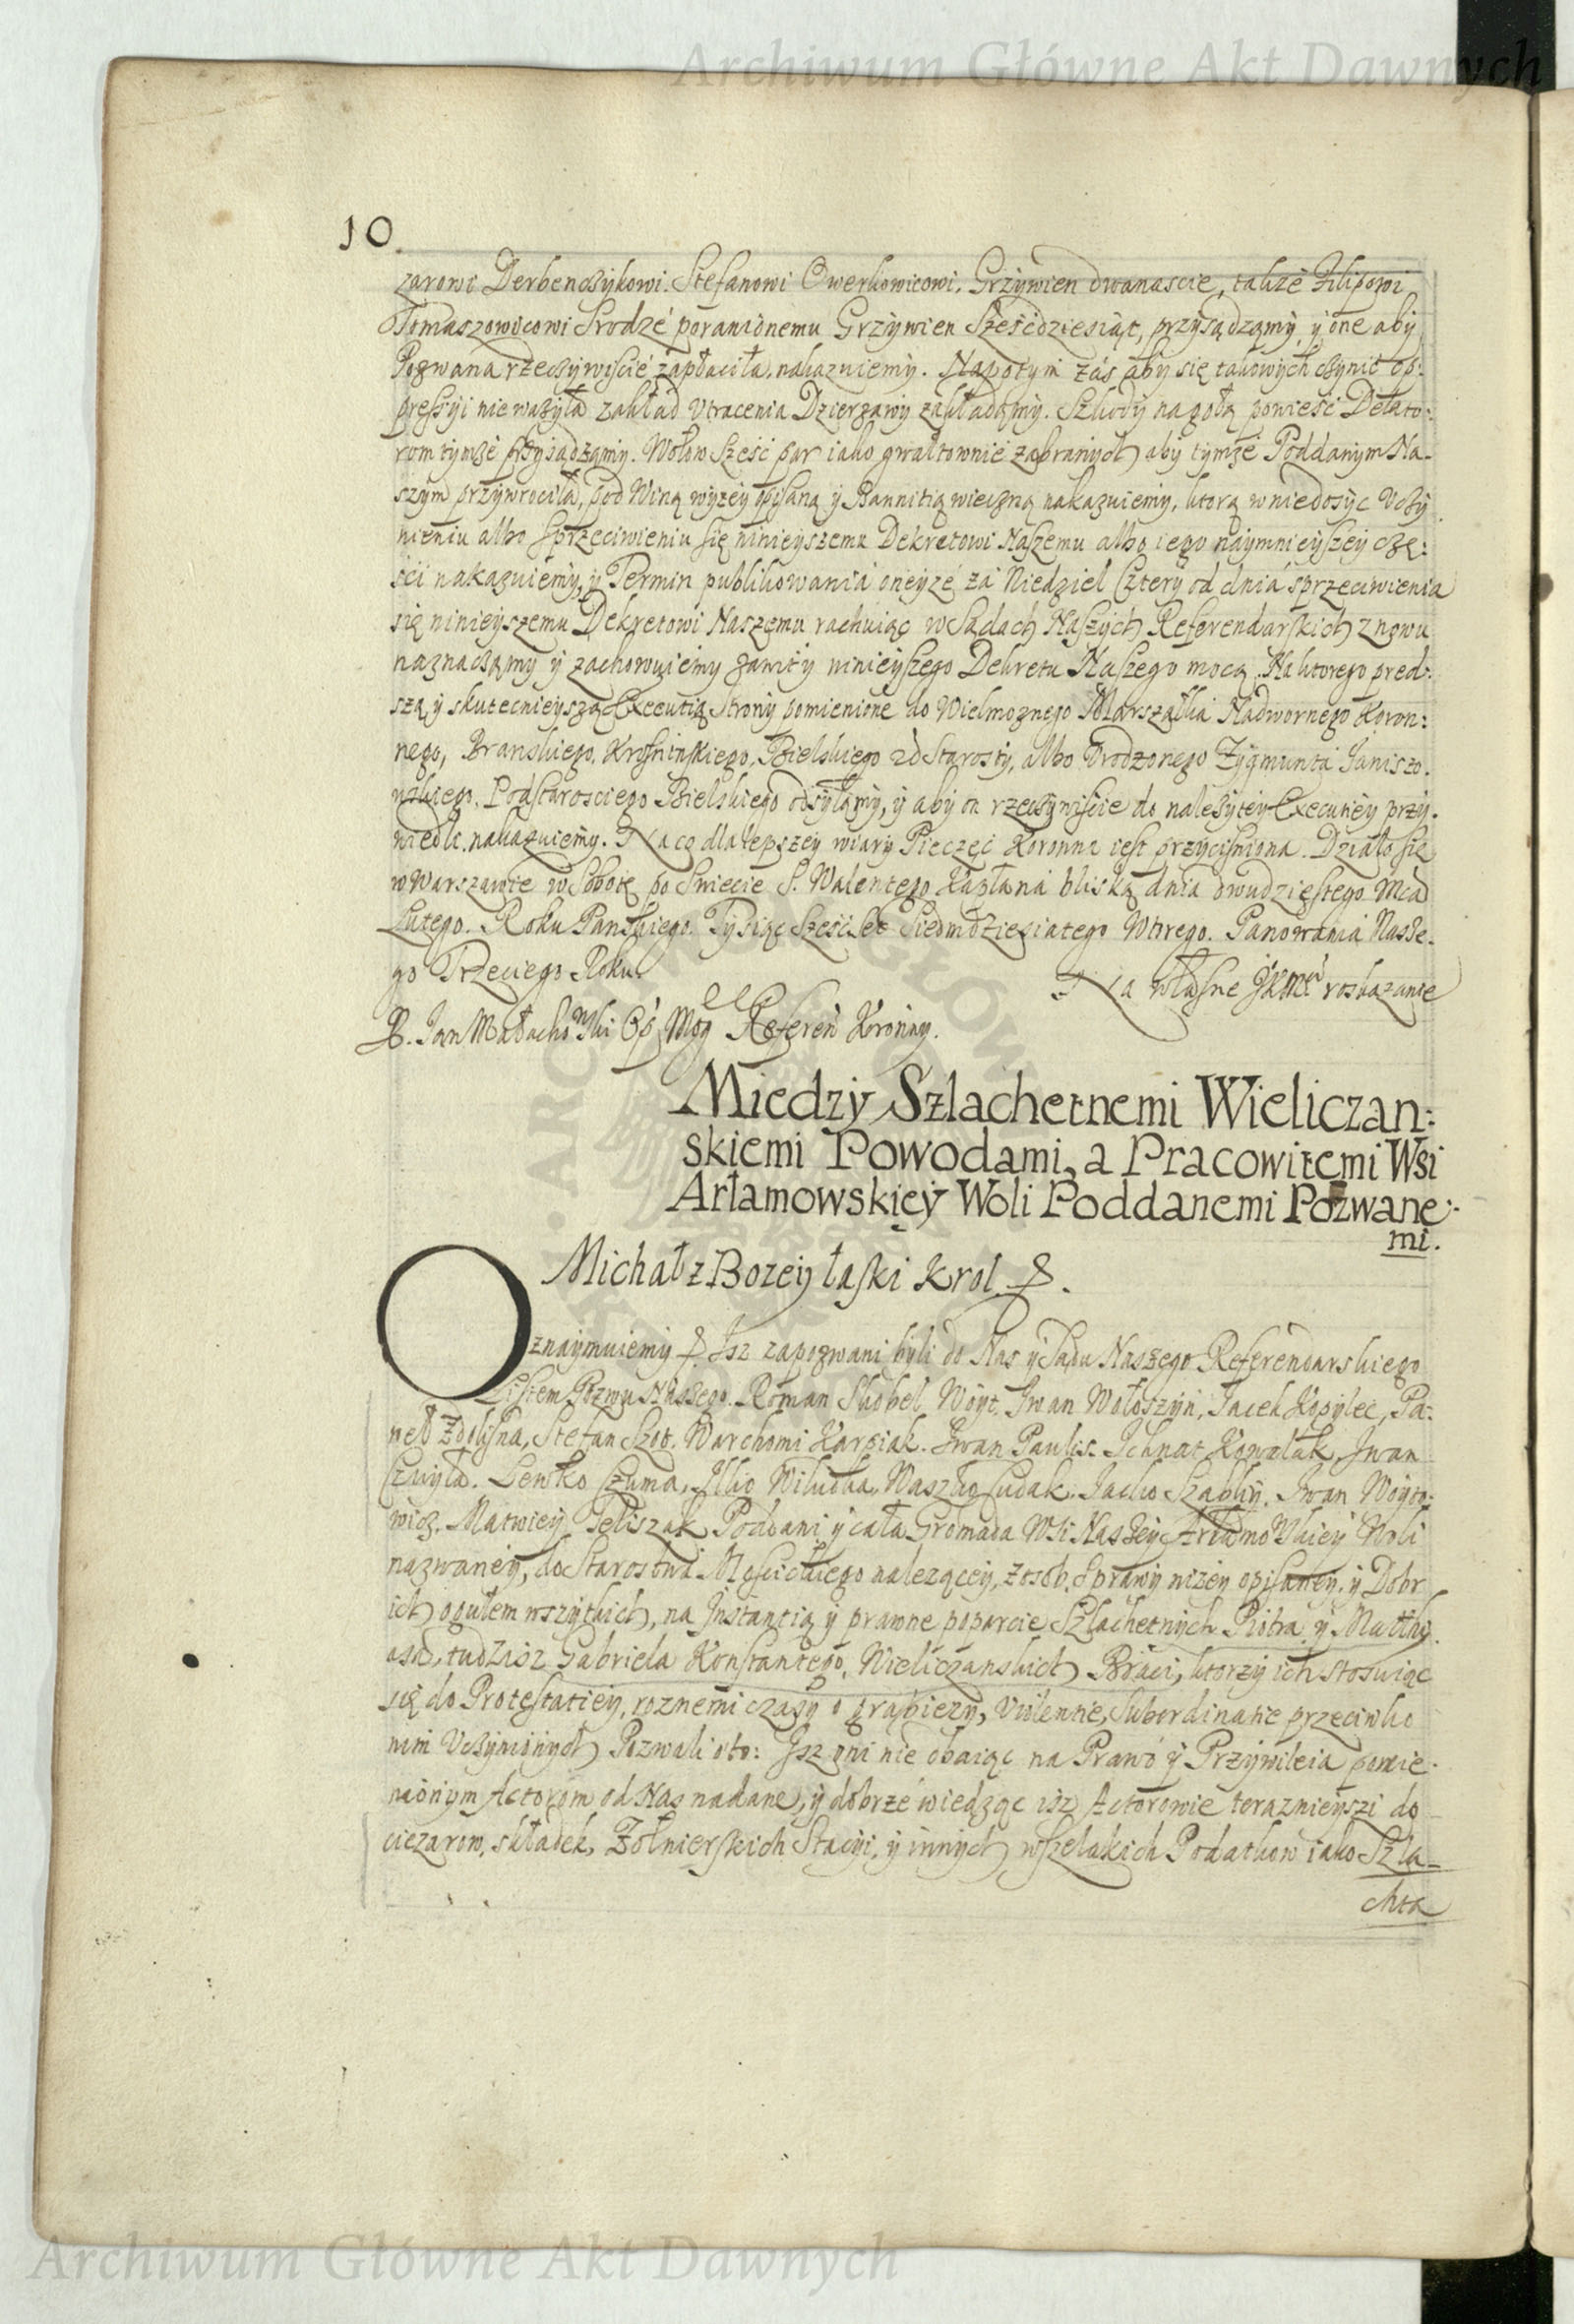 Archiwum Główne Akt Dawnych
10
zarowi Derbendzykowi. Stefanowi Owerkowicowi. Grzywien dwanascie, takze Filipowi
Tomaszowicowi Srodze poranionemu Grzywien Sześćdziesiąt, przysądzamy, y one aby
Pozwana rzeczywiście zapłaciła, nakazuiemy. Napotym záś aby się takowych czynić op:
pressyi nie wazyła zakład Utracenia Dzierzawy zakładamy. Szkody na gołą powieść Delato:
rom tymże przysądzamy. Wołow Sześć par iako gwałtownie zabranych aby tymże Poddanym Na-
szym przywrociła, pod Winą wyzey opisaną y Bannitią wieczną nakazuiemy, ktorą w niedosyć Uczy
nieniu albo Sprzeciwieniu się ninieyszemu Dekretowi Naszemu albo iego naymnieyszey czę:
ści nakazuiemy, y Termin publikowania oneyze za Niedziel Cztery od dnia sprzeciwienia
się ninieyszemu Dekretowi Naszemu rachuiąc w Sądach Naszych Referendarskich znowu
naznaczamy y zachowuiemy zawity ninieyszego Dekretu Naszego mocą. Na ktorego pred:
szą y skutecnieyszą Executią Strony pomienione do Wielmoznego Marszałka Nadwornego Koron:
nego, Branskiego, Krosninskiego, Bielskiego Starosty, albo Urodzonego Zygmunta Janiszo.
wskiego. Podstarosciego Bielskiego odsyłamy, y aby on rzeczywiście do nalezytey Executiey przy.
wiedli, nakazuiemy. Na co dla lepszey wiary Pieczęć Koronna iest przyciśniona. Działo się
w Warszawie w Sobotę po Swiecie S. Walentego Kapłana bliską dnia dwudziestego Mca
Lutego. Roku Panskiego. Tysiąc Sześćset Siedmdziesiatego Wtorego. Panowania Nasze.
go Trzeciego Roku.
Na własne rozkazanie
Jan Małachowski Referen Koronny.
Miedzy Szlachetnemi Wieliczan:
skiemi Powodami, a Pracowitemi Wsi
Artamowskiey Woli Poddanemi Pozwane.
mi.
Michał z Bozey łaski Krol
Oznaymuiemy Isz zapozwani byli do Nas y Sądu Naszego Referendarskiego
Listem Pozwu Naszego. Roman Skobel Woyt, Iwan Wołoszyn, Jacek Kopylec, Pa:
neł Zdolisna, Stefan Szot. Warchomi Karpiak. Iwan Paulis. Ichnat Kowalak, Iwan
Czwyła. Lewko Czuma, Illio Wilucha, Waszko Cudak. Jacko Szablin. Iwan Woyto:
wicz. Matwiey Teliszak Poddani y cała Gromada Wsi Naszey Artamowskiey Woli
nazwaney, do Starostwa Mościckiego nalezącey, z osób, Sprawy nizey opisaney, y Dobr
ich ogułem wszytkich, na Instantią y prawne poparcie Szlachetnych Piotra y Matthy.
asa, tudzisz Gabriela Konstantego, Wieliczanskich Braci, ktorzy ich stosuiąc
się do Protestatiey, roznemi czasy o grabiezy, Violentie, Subordinatie przeciwko
nim Uczynionych Pozwali oto: Isz oni nie dbaiąc na Prawo y Przywileia pomie-
nionym Actorom od Nas nadane, y dobrze wiedząc isz Actorowie teraznieyszi do
ciezarow, składek, Zołnierskich Stacyi, y innych wszelakich Podatkow iako Szla-
chta
Archiwum Główne Akt Dawnych